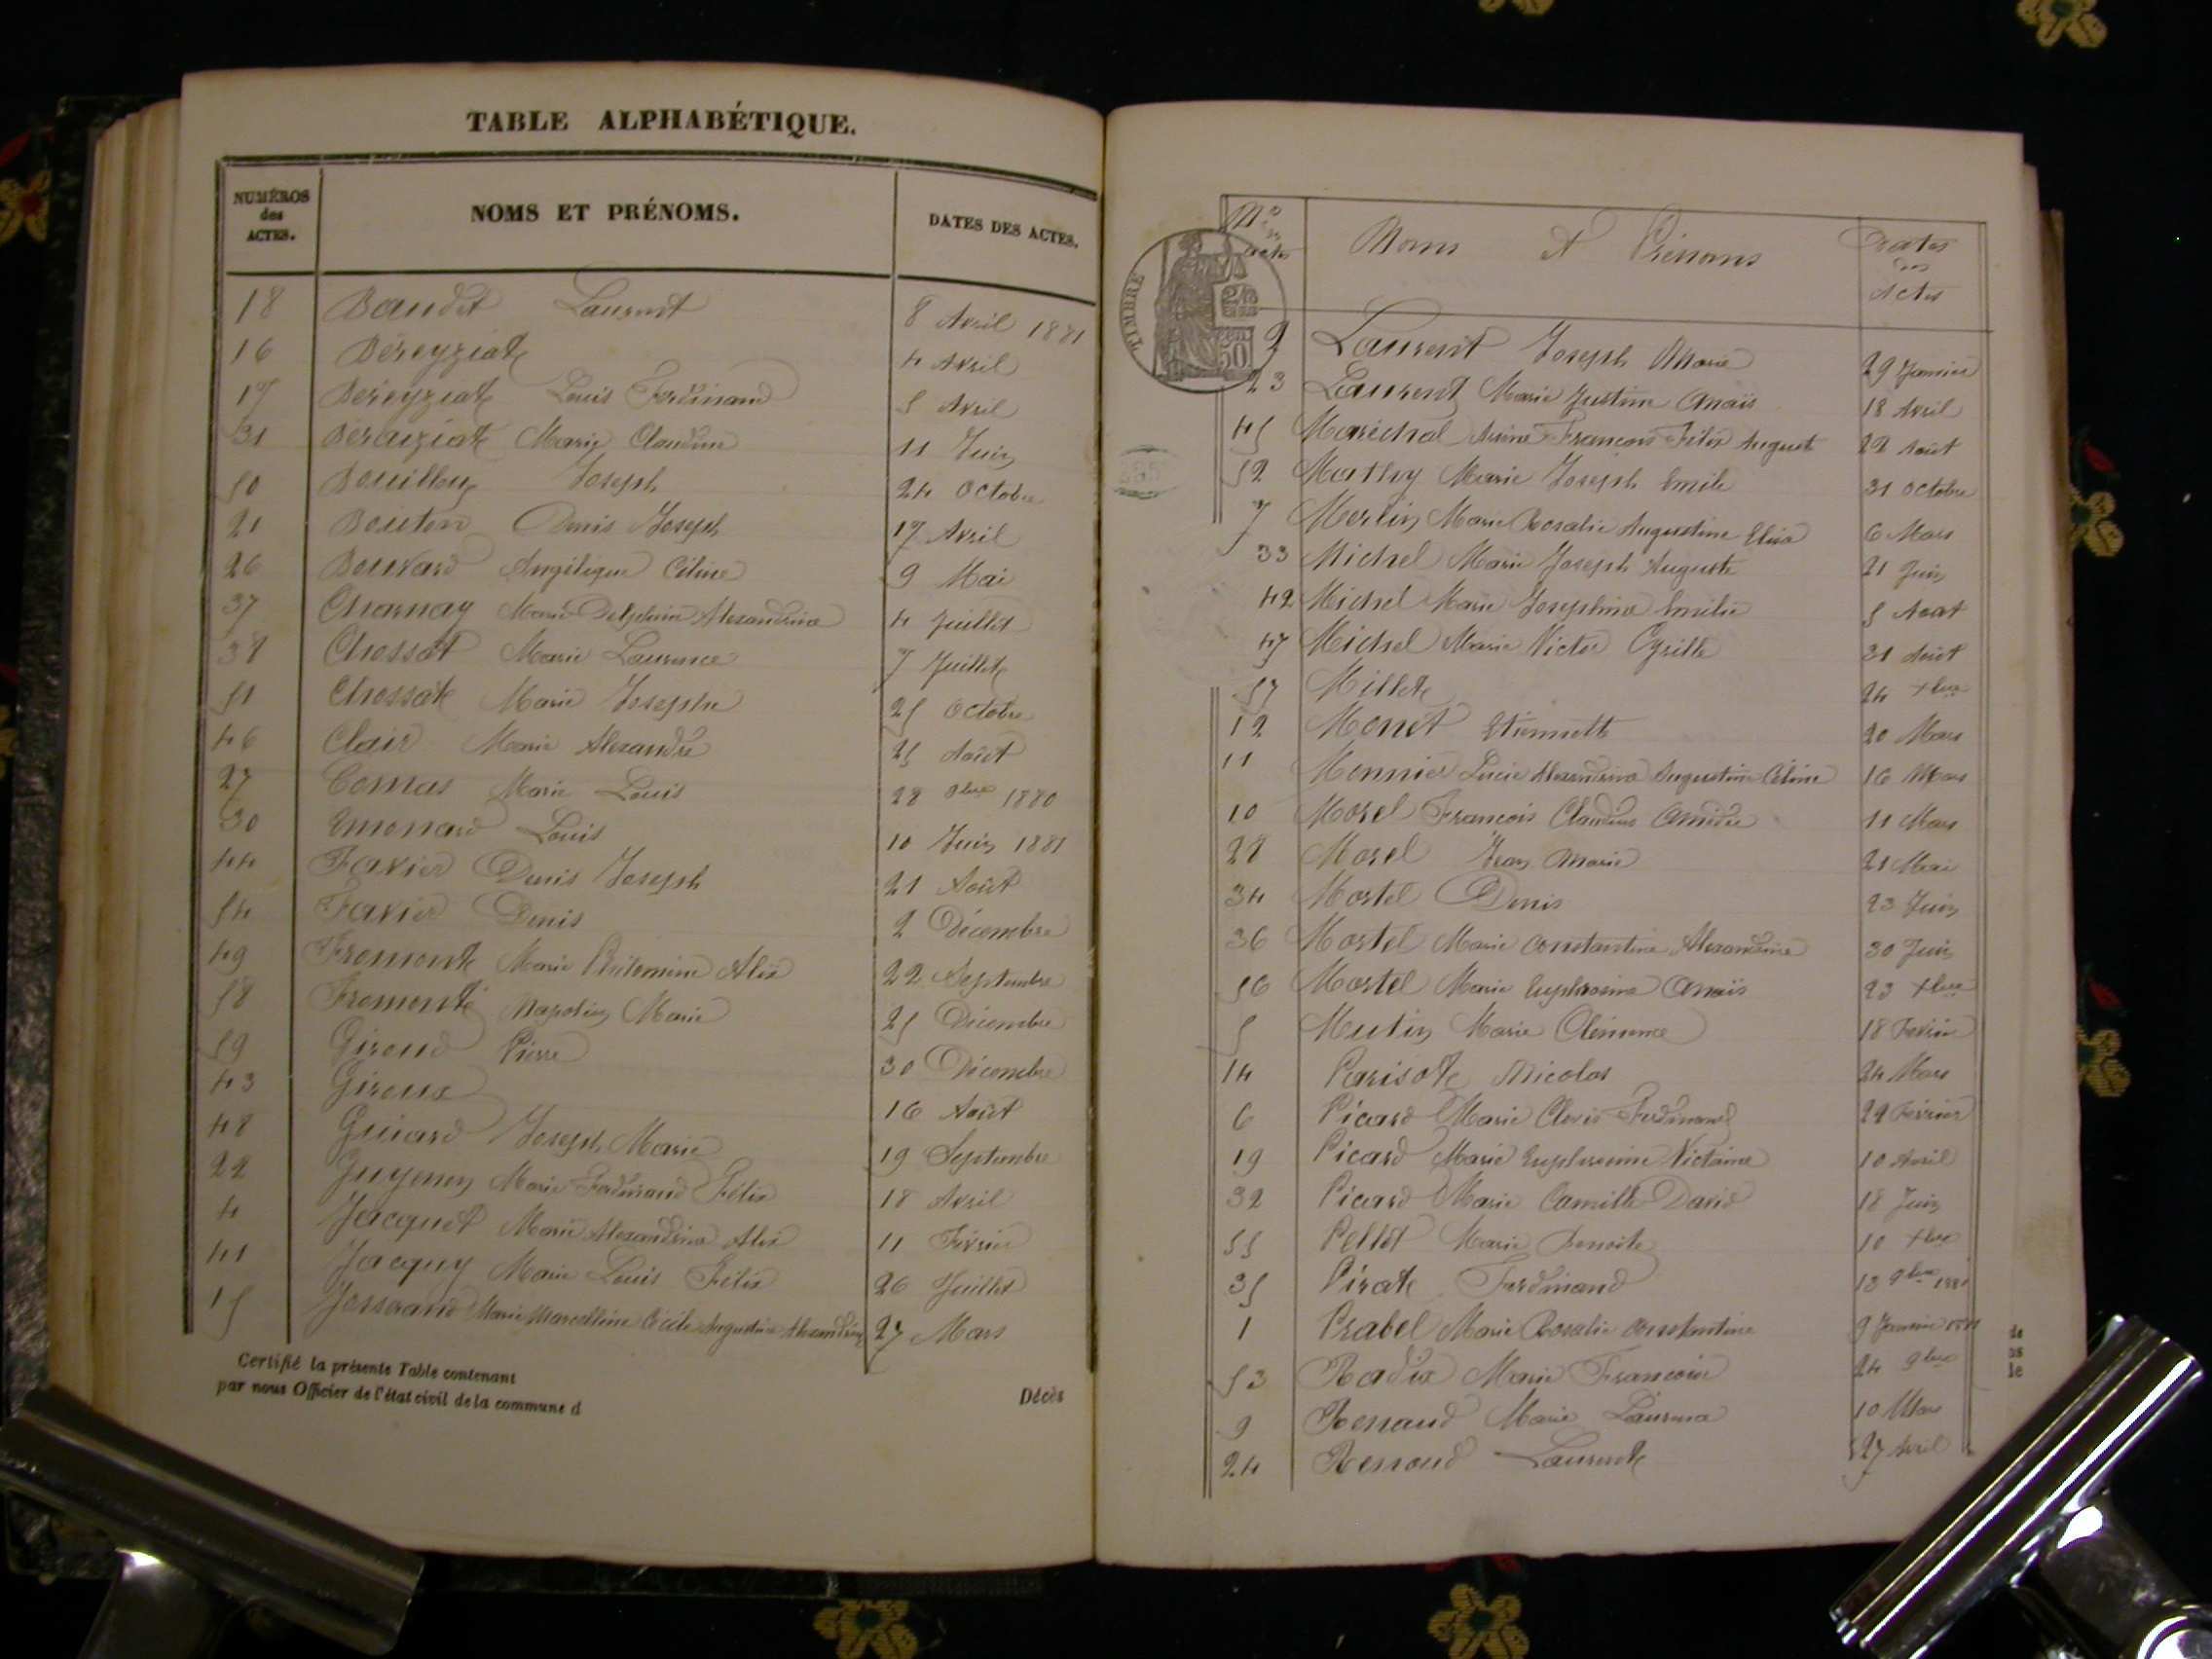 TABLE ALPHABÉTIQUE.
NUMÉROS des ACTES. NOMS ET PRÉNOMS. DATES DES ACTES.
18 Baudet Laurent 8 Avril 1881
16 Béreyziat 4 Avril
17 Béreyziat Louis Ferdinand 5 Avril
31 Béraiziat Marie Claudine 11 Juin
50 Bouilloux Joseph 24 Octobre
21 Bouton Denis Joseph 17 Avril
26 Bouvard Angélique Céline 9 Mai
37 Charnay Marie Delphine Alexandrine 4 Juillet
38 Chossat Marie Laurence 7 Juillet
51 Chossat Marie Josephe 25 Octobre
46 Clair Marie Alexandre 25 Août
27 Comas Marie Louis 28 9bre 1880
30 Emonard Louis 10 Juin 1881
44 Favier Denis Joseph 21 Août
54 Favier Denis 2 Décembre
49 Fromont Marie Philomine Alix 22 Septembre
58 Fromont Napoléon Marie 25 Décembre
59 Giroud Pierre 30 Décembre
43 Giroux 16 Août
48 Guirard Joseph Marie 19 Septembre
22 Guyenon Marie Ferdinand Félix 18 Avril
4 Jacquet Marie Alexandrine Alix 11 Février
41 Jacquy Marie Louis Félix 26 Juillet
15 Josserand Marie Marcelline Cécile Augustine Alexandrine 27 Mars
Certifié la présente Table contenant Décès
par nous Officier de l'état civil de la commune d
Nos des actes Noms et Prénoms Dates des Actes
TIMBRE
2/10 en sus
50
2 Laurent Joseph Marie 29 Janvier
23 Laurent Marie Justine Anaïs 18 Avril
45 Maréchal François Félix Auguste 22 Août
52 Mathy Marie Joseph Emile 31 Octobre
7 Merlin Marie Rosalie Augustine Elisa 6 Mars
33 Michel Marie Joseph Auguste 21 Juin
42 Michel Marie Josephine Emilie 5 Aout
47 Michel Marie Victor Cyrille 31 Août
57 Millet 24 xbre
12 Monet Etiennette 20 Mars
11 Monnier Lucie Alexandrine Augustine Céline 16 Mars
10 Morel François Claudius Amédée 11 Mars
28 Morel Jean Marie 21 Mai
34 Mortel Denis 23 Juin
36 Mortel Marie Constantine Alexandrine 30 Juin
56 Mortel Marie Euphrosine Anaïs 23 xbre
5 Mutin Marie Clémence 18 Février
14 Parisot Nicolas 24 Mars
6 Picard Marie Clovis Ferdinand 22 Février
19 Picard Marie Euphrosine Victorine 10 Avril
32 Picard Marie Camille David 18 Juin
55 Pellet Marie Benoite 10 xbre
35 Pirat Ferdinand 13 9bre 1880
1 Prabel Marie Rosalie Constantine 9 Janvier 1881
53 Radix Marie Françoise 24 9bre
9 Renaud Marie Laurence 10 Mars
24 Renoud Laurent 27 Avril